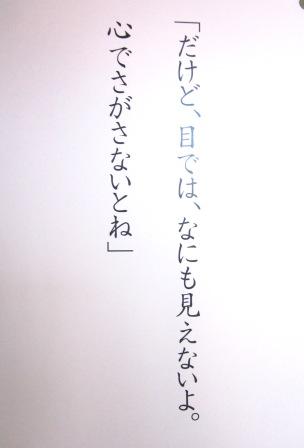 「だけど、目では、なにも見えないよ。
心でさがさないとね」